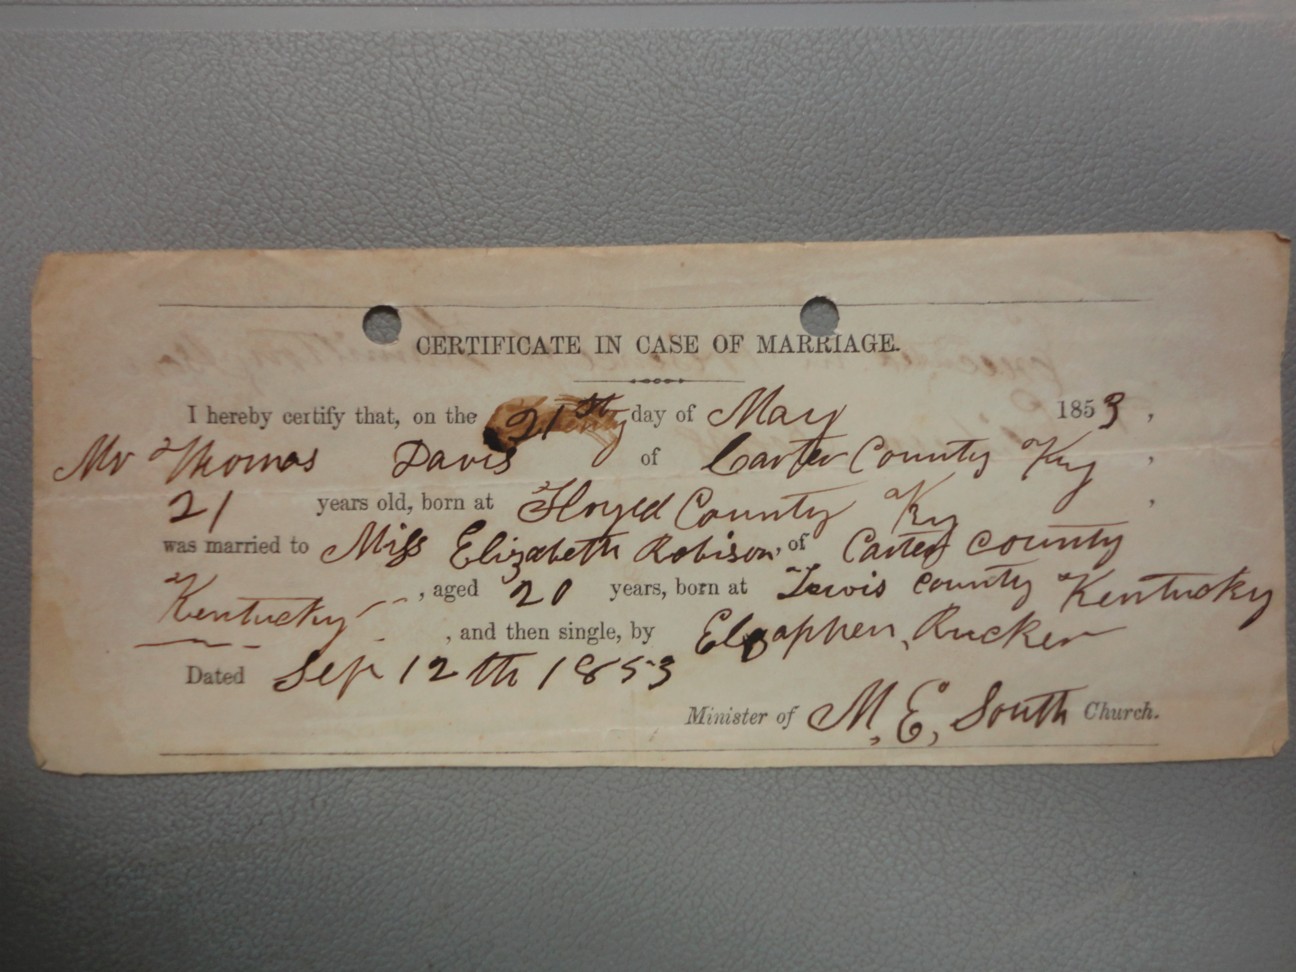 CERTIFICATE IN CASE OF MARRIAGE.
I hereby certify that, on the 21st day of May 1853,
Mr Thomas Davis of Carter County Ky,
21 years old, born at Floyed County Ky,
was married to Miss Elizabeth Robison, of Carter county
Kentucky, aged 20 years, born at Lewis county Kentucky
, and then single, by Elzaphen Rucker
Dated Sep 12th 1853
Minister of M. E. South Church.